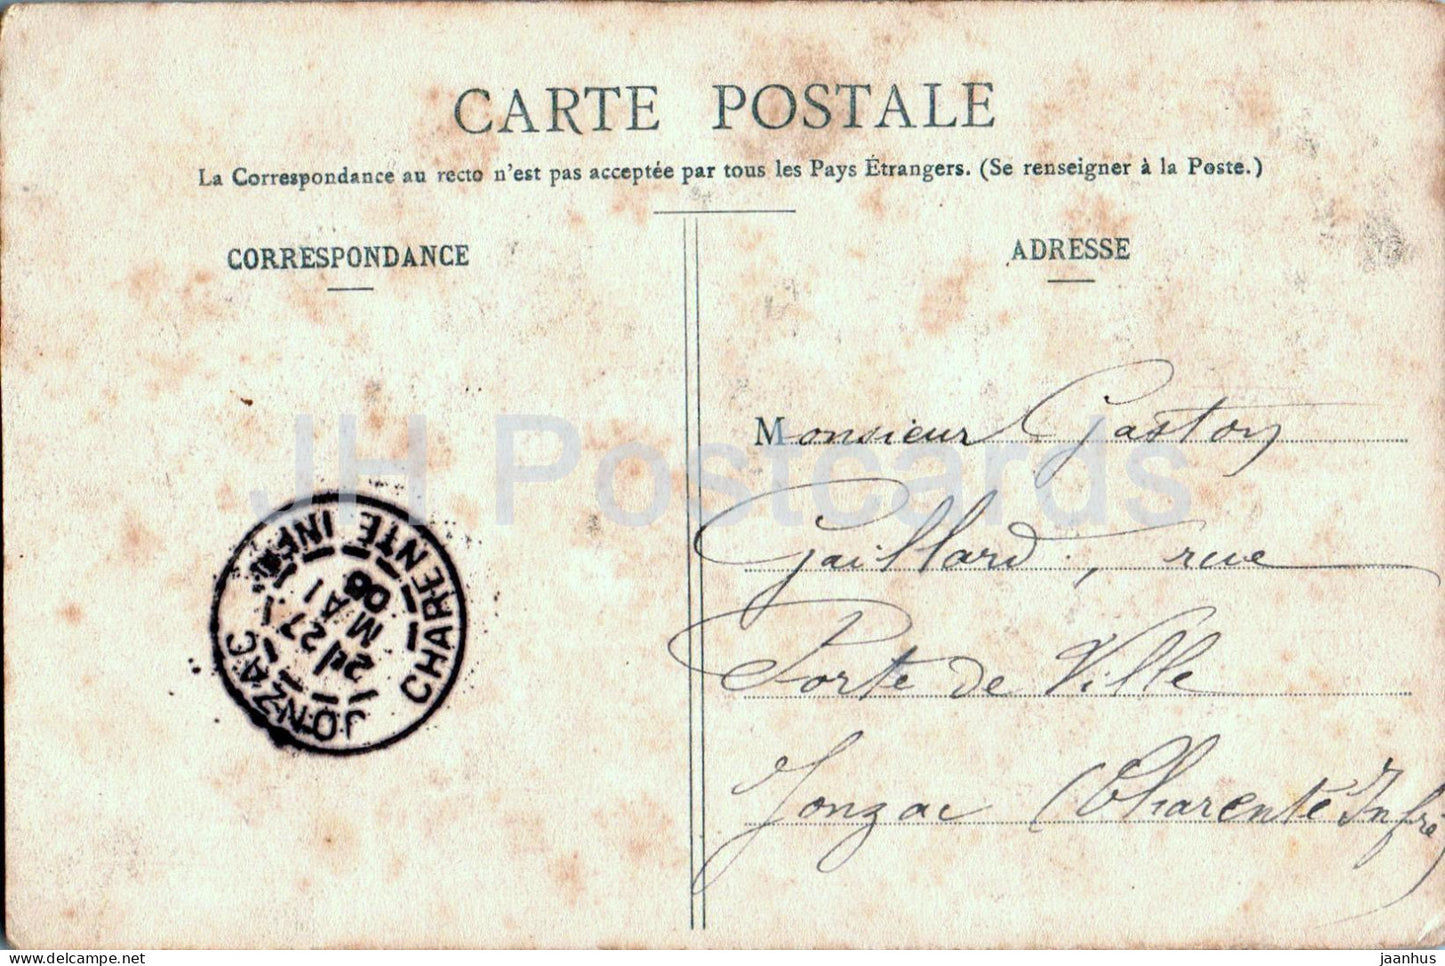 CARTE POSTALE
La Correspondance au recto n'est pas acceptée par tous les Pays Étrangers. (Se renseigner à la Poste.)
CORRESPONDANCE
ADRESSE
Monsieur Gaston
Gaillard, rue
Porte de Ville
Jonzac (Charente Infre)
JONZAC
CHARENTE INFRE
27
MAI
06
JH Postcards
jaanhus